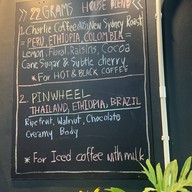 22 GRAMS HOUSE BLEND
1. Charlie Coffee New Sydney Roast
= PERU, ETHIOPIA, COLOMBIA =
Lemon, Floral, Raisins, Cocoa
Cane Sugar & Subtle cherry
* For HOT & BLACK COFFEE
2. PINWHEEL
THAILAND, ETHIOPIA, BRAZIL
Ripe fruit, Walnut, Chocolate
Creamy Body
* For Iced coffee with milk